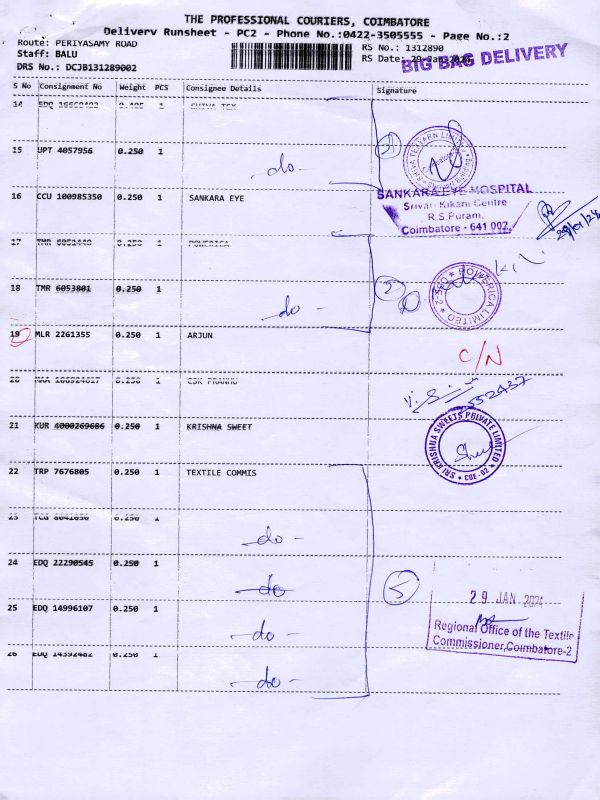 THE PROFESSIONAL COURIERS, COIMBATORE
Delivery Runsheet - PC2 - Phone No.:0422-3505555 - Page No.:2
Route: PERIYASAMY ROAD RS No.: 1312890
Staff: BALU RS Date: 29-Jan-2024
DRS No.: DCJB131289002
BIG BAG DELIVERY
S No Consignment No Weight PCS Consignee Details Signature
14 EDQ SHIVA TEX
15 UPT 4057956 0.250 1 -do-
16 CCU 100985350 0.250 1 SANKARA EYE
SANKARA EYE HOSPITAL
Srivari Kikani Centre
R.S.Puram,
Coimbatore - 641 002.
29/01/24
17 TMR 0.250 1 POWERICA
18 TMR 6053801 0.250 1 -do-
2
POWERICA LIMITED * CBE-2 *
19 MLR 2261355 0.250 1 ARJUN
C/N
20 MAA 0.250 1 CSK PRABHU
552437
21 KUR 4000269686 0.250 1 KRISHNA SWEET
SRI KRISHNA SWEETS PRIVATE LIMITED * CBE-02 *
22 TRP 7676805 0.250 1 TEXTILE COMMIS
23 TCG 0.250 1 -do-
24 EDQ 22290545 0.250 1 -do-
5
29 JAN 2024
25 EDQ 14996107 0.250 1 -do-
Regional Office of the Textile
Commissioner,Coimbatore-2
26 EDQ 14392482 0.250 1 -do-